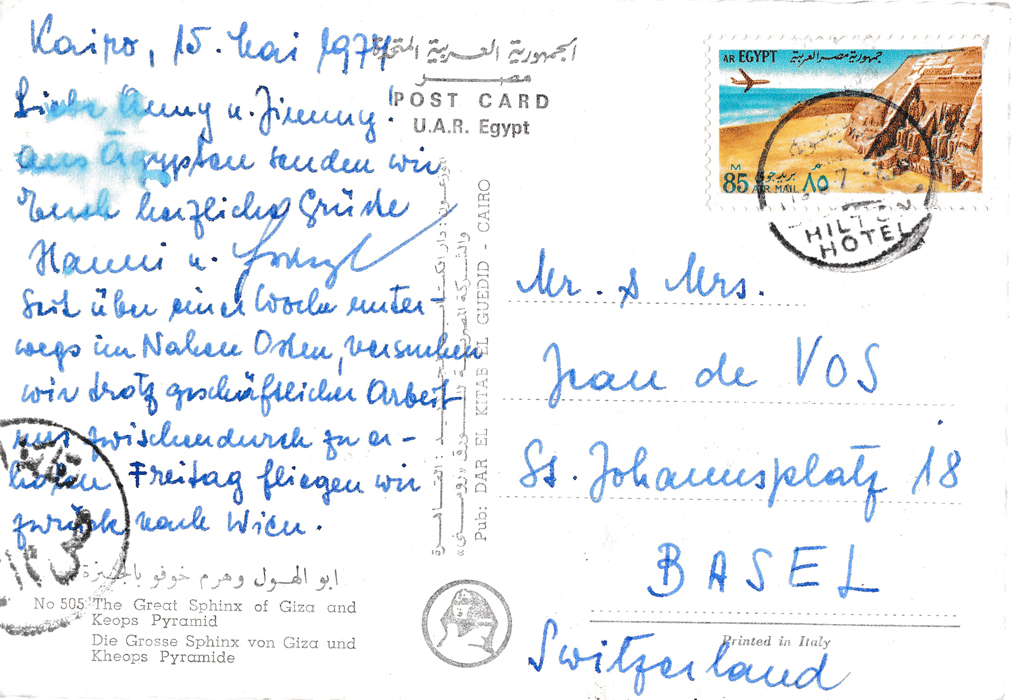 Kairo, 15. Mai 1974
Liebe Anny u. Jimmy!
Aus Ägypten senden wir
Euch herzliche Grüße
Hanni u.
Seit über einer Woche unter-
wegs im Nahen Osten, versuchen
wir trotz geschäftlicher Arbeit
uns zwischendurch zu er-
holen. Freitag fliegen wir
zurück nach Wien.
ابو الهول وهرم خوفو بالجيزة
No 505 The Great Sphinx of Giza and
Keops Pyramid
Die Grosse Sphinx von Giza und
Kheops Pyramide
الجمهورية العربية المتحدة
مصر
POST CARD
U.A.R. Egypt
Pub: DAR EL KITAB EL GUEDID - CAIRO
AR EGYPT جمهورية مصر العربية
M 85 بريد جوى ٨٥ م
AIR MAIL
HILTON
HOTEL
Mr. & Mrs.
Jean de VOS
St. Johannsplatz 18
BASEL
Switzerland
Printed in Italy